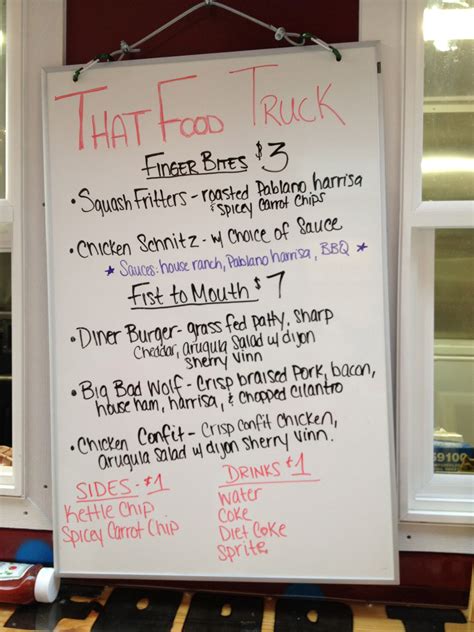 THAT FOOD TRUCK
FINGER BITES $3
• Squash Fritters - roasted Pablano harrisa
& spicey Carrot Chips
• Chicken Schnitz - w/ Choice of Sauce
★ Sauces: house ranch, Pablano harrisa, BBQ ★
FIST TO MOUTH $7
• Diner Burger - grass fed patty, sharp
Cheddar, arugula Salad w/ dijon
sherry vinn
• Big Bad Wolf - Crisp braised Pork, bacon,
house ham, harrisa, & chopped cilantro
• Chicken Confit - Crisp confit chicken,
arugula salad w/ dijon sherry Vinn.
SIDES - $1
Kettle Chip
Spicey Carrot Chip
DRINKS $1
Water
Coke
Diet Coke
Sprite